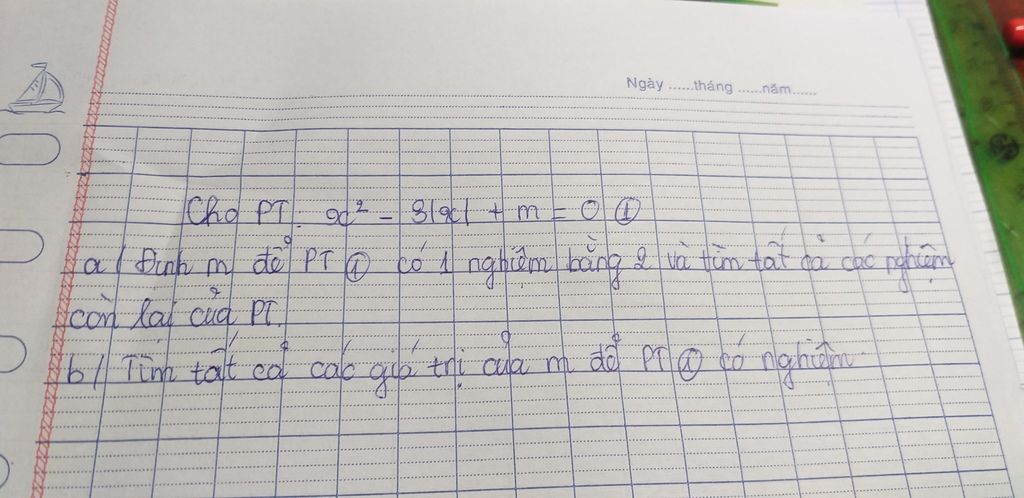 Ngày ......tháng ......năm......
Cho PT: x² - 3|x| + m = 0 ①
a/ Định m để PT ① có 1 nghiệm bằng 2 và tìm tất cả các nghiệm
còn lại của PT.
b/ Tìm tất cả các giá trị của m để PT ① có nghiệm.